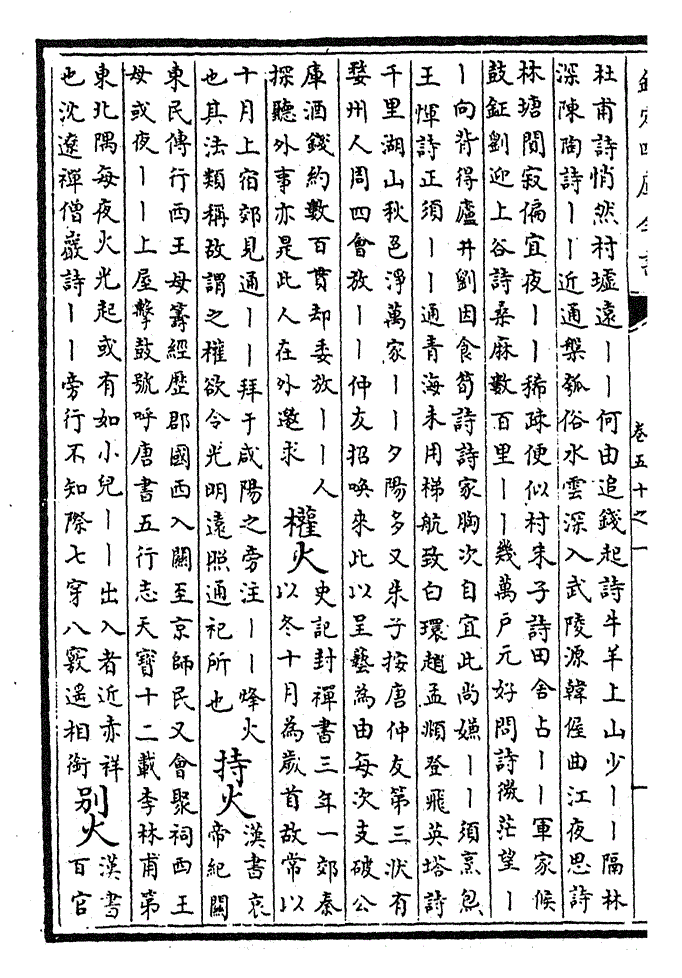 欽定四庫全書
卷五十之一
杜甫詩悄然村墟遠丨丨何由追錢起詩牛羊上山少丨丨隔林
深陳陶詩丨丨近通槃瓠俗水雲深入武陵源韓偓曲江夜思詩
林塘間寂偏宜夜丨丨稀疎便似村朱子詩田舍占丨丨軍家候
鼓鉦劉迎上谷詩桑麻數百里丨丨幾萬戶元好問詩微茫望丨
丨向背得廬井劉因食筍詩詩家胸次自宜此尚嫌丨丨須烹炰
王惲詩正須丨丨通青海未用梯航致白環趙孟頫登飛英塔詩
千里湖山秋色淨萬家丨丨夕陽多又朱子按唐仲友第三狀有
婺州人周四會放丨丨仲友招喚來此以呈藝為由每次支破公
庫酒錢約數百貫却委放丨丨人
探聽外事亦是此人在外邀求
權火
史記封禪書三年一郊秦
以冬十月為歲首故常以
十月上宿郊見通丨丨拜于咸陽之旁注丨丨烽火
也其法類稱故謂之權欲令光明遠照通祀所也
持火
漢書哀
帝紀關
東民傳行西王母籌經歷郡國西入關至京師民又會聚祠西王
母或夜丨丨上屋擊鼓號呼唐書五行志天寶十二載李林甫第
東北隅每夜火光起或有如小兒丨丨出入者近赤祥
也沈遼禪僧巖詩丨丨旁行不知際七穿八竅遥相銜
别火
漢書
百官